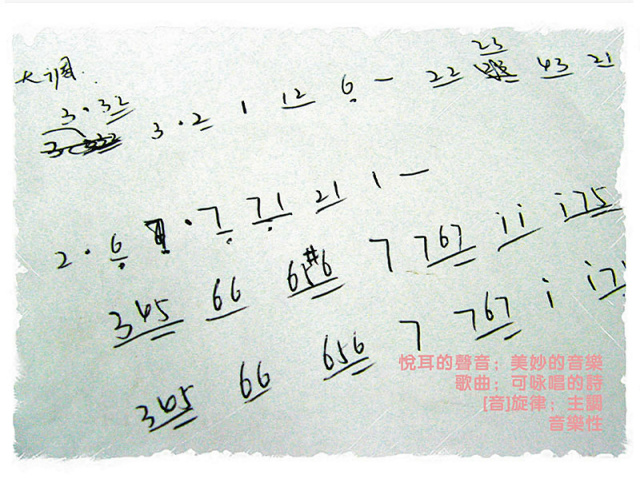 大调.
23
3·32 3·2 1 12 6 - 22 43 21
2·6 ·7 71 21 1 -
345 66 6#56 7 767 ii i75
345 66 656 7 767 i i7
悅耳的聲音；美妙的音樂
歌曲；可咏唱的詩
[音]旋律；主調
音樂性